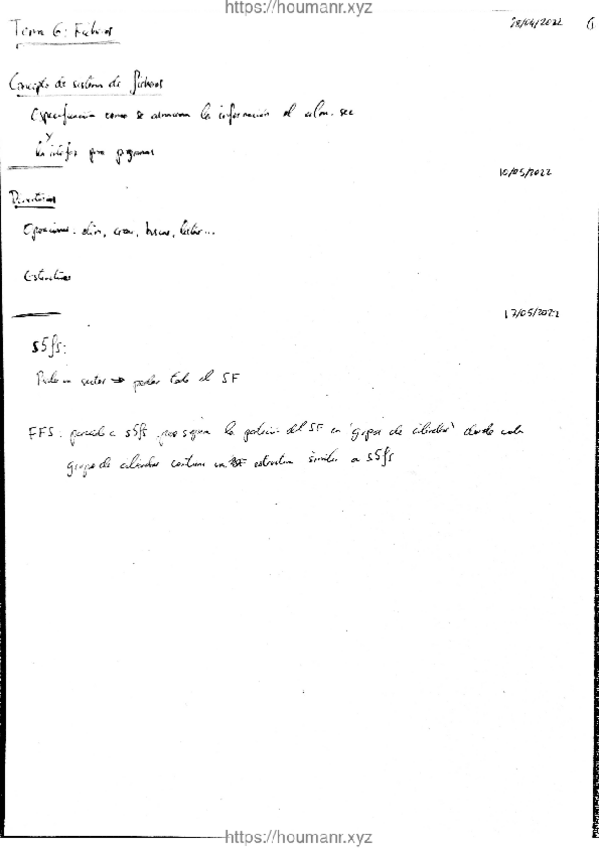 https://houmanr.xyz
28/04/2022 6
Tema 6: Ficheros
Concepto de sistema de ficheros
Especificación como se almacena la información al alm. sec
y
la interfaz para programas
10/05/2022
Directorios
Operaciones: abrir, crear, buscar, listar...
Estructuras
17/05/2022
s5fs:
Pierde un sector => perder todo el SF
FFS: parecido a s5fs pero separa la partición del SF en "grupos de cilindros" donde cada
grupo de cilindros contiene una estructura similar a s5fs
https://houmanr.xyz